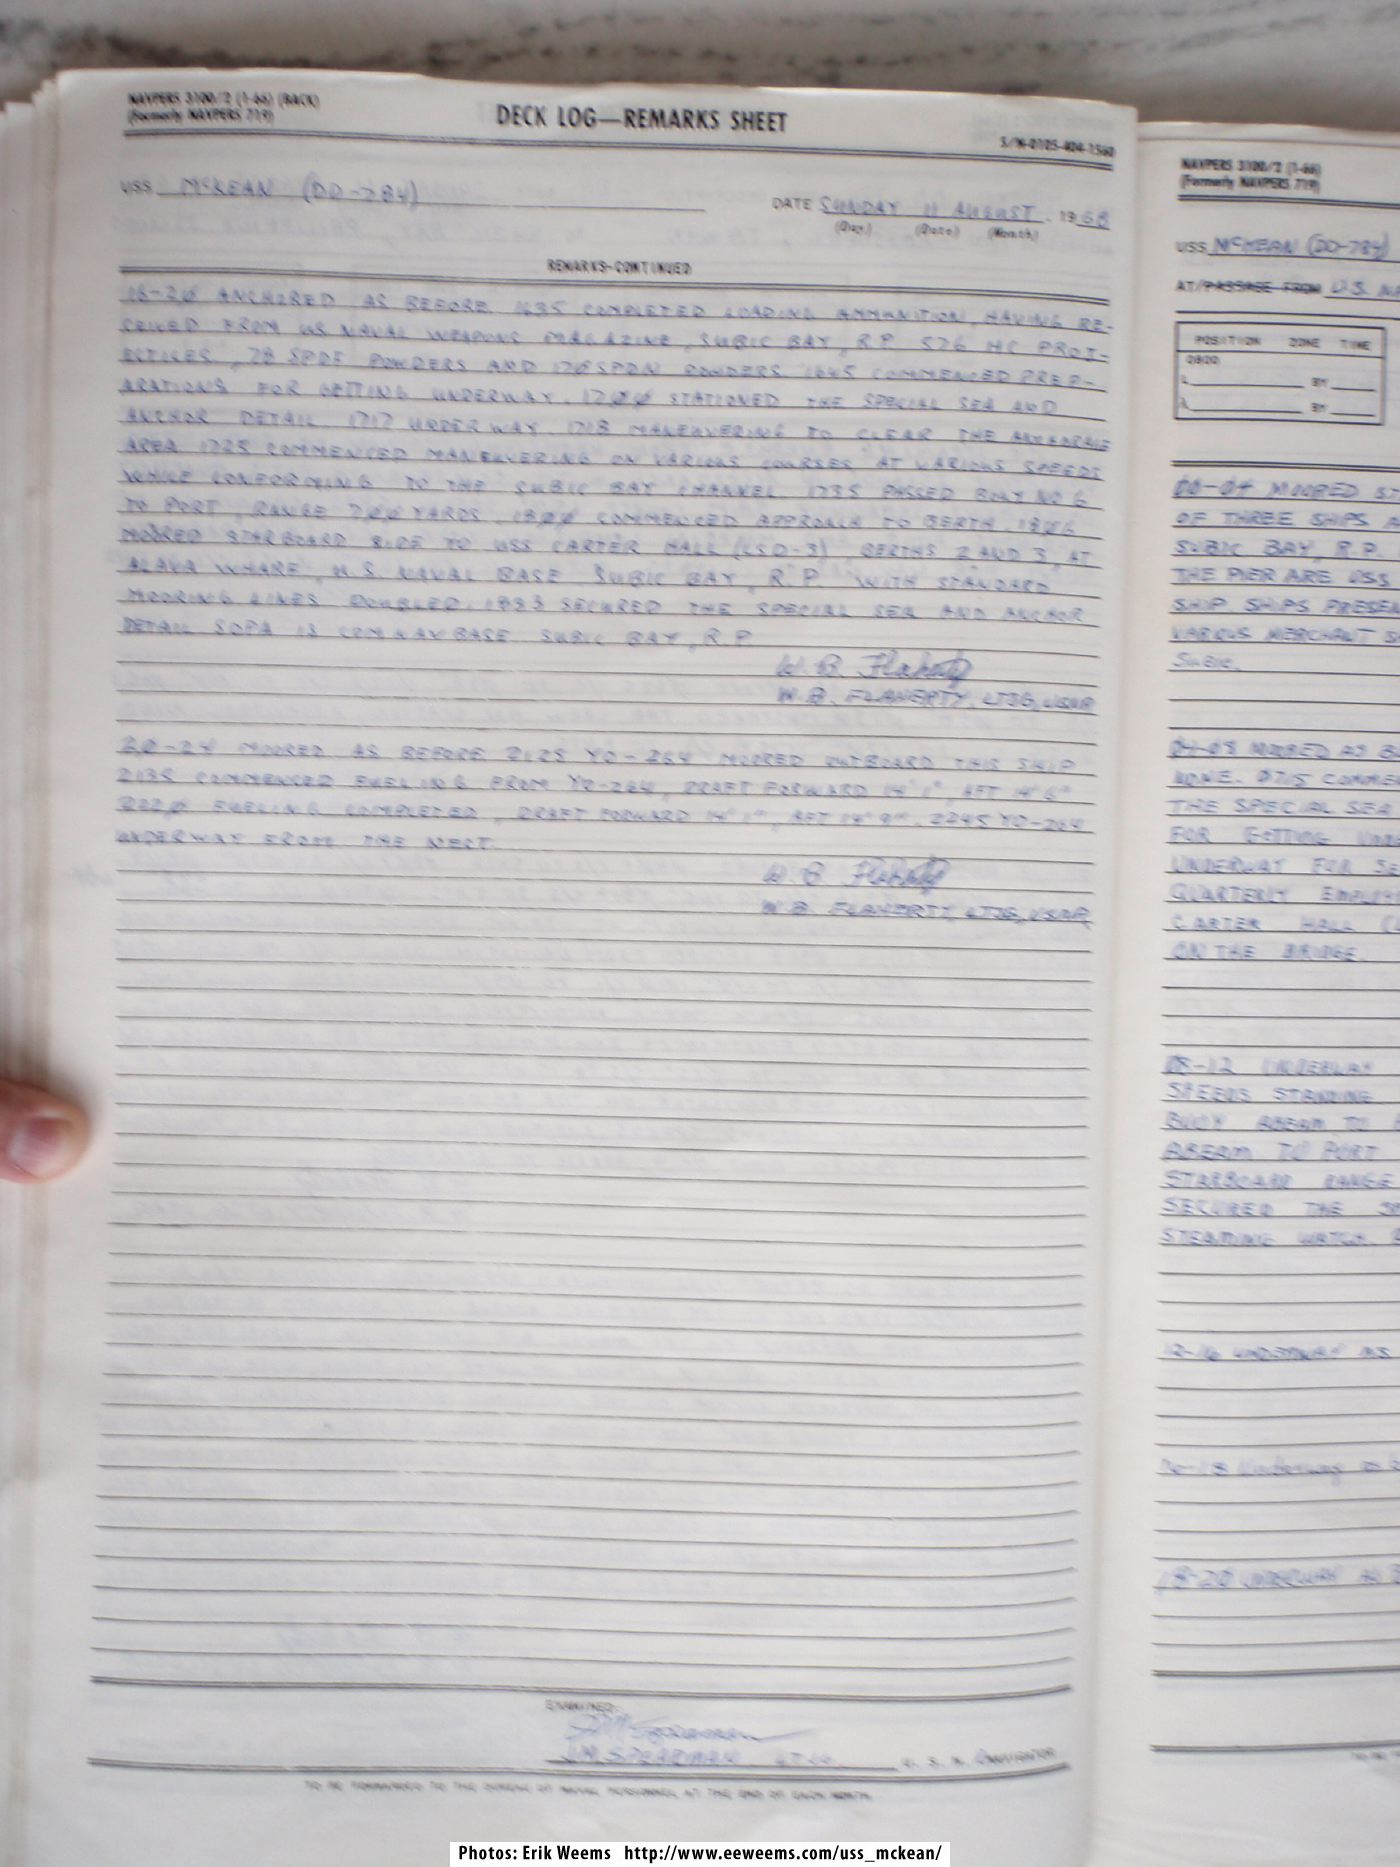 NAVPERS 3100/2 (1-66) (BACK)
(Formerly NAVPERS 719)
DECK LOG—REMARKS SHEET
S/N-0105-404-1560
USS McKEAN (DD-784)
DATE SUNDAY 11 AUGUST, 1968
(Day) (Date) (Month)
REMARKS-CONTINUED
16-20 ANCHORED AS BEFORE. 1635 COMPLETED LOADING AMMUNITION, HAVING RE-
CEIVED FROM US NAVAL WEAPONS MAGAZINE, SUBIC BAY, R.P. 576 HC PROJ-
ECTILES, 78 SPDF POWDERS AND 170 SPDN POWDERS. 1645 COMMENCED PREP-
ARATIONS FOR GETTING UNDERWAY. 1700 STATIONED THE SPECIAL SEA AND
ANCHOR DETAIL. 1717 UNDERWAY. 1718 MANEUVERING TO CLEAR THE ANCHORAGE
AREA. 1725 COMMENCED MANEUVERING ON VARIOUS COURSES AT VARIOUS SPEEDS
WHILE CONFORMING TO THE SUBIC BAY CHANNEL. 1735 PASSED BUOY NO 6
TO PORT, RANGE 700 YARDS. 1800 COMMENCED APPROACH TO BERTH. 1806
MOORED STARBOARD SIDE TO USS CARTER HALL (LSD-3), BERTHS 2 AND 3, AT
ALAVA WHARF, U.S. NAVAL BASE SUBIC BAY, R.P. WITH STANDARD
MOORING LINES DOUBLED. 1833 SECURED THE SPECIAL SEA AND ANCHOR
DETAIL. SOPA IS COMNAVBASE SUBIC BAY, R.P.
W. B. Flaherty
W.B. FLAHERTY, LTJG, USNR
20-24 MOORED AS BEFORE. 2125 YO-264 MOORED OUTBOARD THIS SHIP
2135 COMMENCED FUELING FROM YO-264, DRAFT FORWARD 14' 1", AFT 14' 6"
2220 FUELING COMPLETED, DRAFT FORWARD 14' 1", AFT 14' 9". 2245 YO-264
UNDERWAY FROM THE NEST.
W. B. Flaherty
W.B. FLAHERTY, LTJG, USNR
EXAMINED:
J.M. SPEARMAN LTJG U. S. N. NAVIGATOR
TO BE FORWARDED TO THE BUREAU OF NAVAL PERSONNEL AT THE END OF EACH MONTH
NAVPERS 3100/2 (1-66)
(Formerly NAVPERS 719)
USS McKEAN (DD-784)
AT/PASSAGE FROM U.S. NA
POSITION ZONE TIME
0800
L BY
λ BY
00-04 MOORED S
OF THREE SHIPS
SUBIC BAY, R.P.
THE PIER ARE USS
SHIP. SHIPS PRESEN
VARIOUS MERCHANT
SUBIC.
04-08 MOORED AS B
NONE. 0715 COMME
THE SPECIAL SEA
FOR GETTING UNDE
UNDERWAY FOR SE
QUARTERLY EMPLOY
CARTER HALL (L
ON THE BRIDGE.
08-12 UNDERWAY
SPEEDS STANDING
BUOY ABEAM TO
ABEAM TO PORT
STARBOARD RANGE
SECURED THE SP
STEAMING WATCH.
12-16 UNDERWAY AS
16-18 Underway as
18-20 UNDERWAY AS B
Photos: Erik Weems http://www.eeweems.com/uss_mckean/